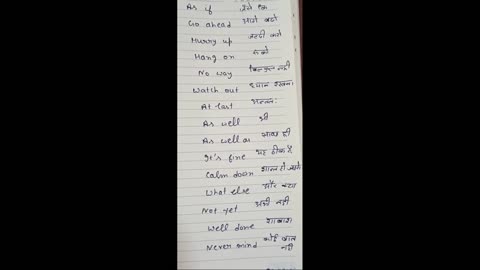 As if जैसे कि
Go ahead आगे बढ़ो
Hurry up जल्दी करो
Hang on रुको
No way बिल्कुल नहीं
Watch out ध्यान रखना
At last अन्ततः
As well भी
As well as साथ ही
It's fine यह ठीक है
Calm down शान्त हो जाओ
What else और क्या
Not yet अभी नहीं
Well done शाबाश
Never mind कोई बात नहीं